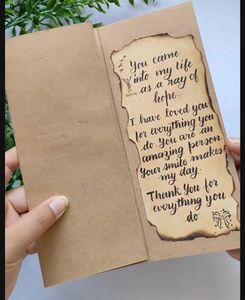 You came
into my life
as a ray of
hope.
I have loved you
for everything you
do. You are an
amazing person
Your smile makes
my day.
Thank You for
everything you
do.